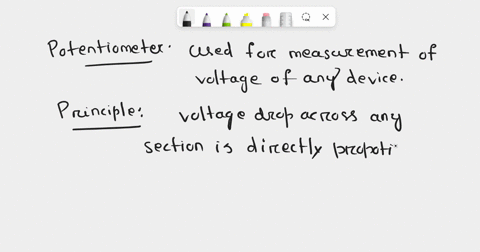 Potentiometer: used for measurement of
voltage of any device.
Principle: voltage drop across any
section is directly propoti